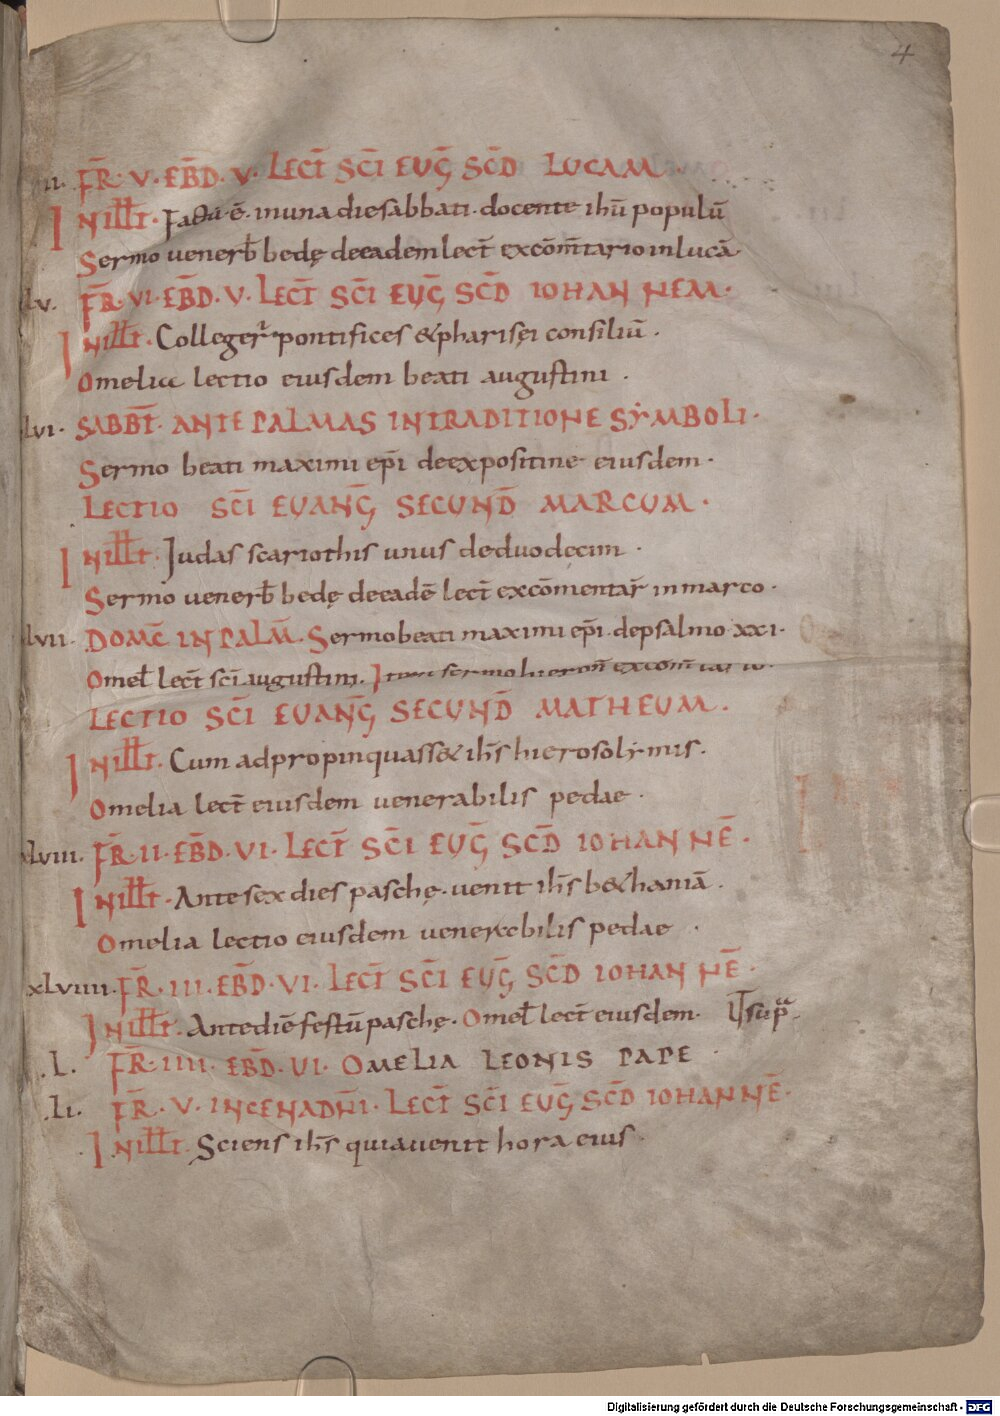 4
FR̄ · V · EBD̄ · V · LECT̄ SC̄I EUḠ SCD̄ LUCAM ·
IN ILL̄ T̄ · Factū ē · in una die sabbati · docente ihū populū
Sermo venerb̄ bedę de eadem lect̄ ex com̄tario in lucā
lv. FR̄ · VI · EBD̄ · V · LECT̄ SC̄I EUḠ SCD̄ IOHANNEM ·
IN ILL̄ T̄ · Colleger̄ pontifices & pharisęi consiliū ·
Omelia lectio eiusdem beati augustini ·
lvi · SABBT̄ · ANTE PALMAS IN TRADITIONE SYMBOLI ·
Sermo beati maximi ep̄i de expositine eiusdem ·
LECTIO SC̄I EUANḠ SECUND̄ MARCUM ·
IN ILL̄ T̄ · Judas scariothis unus de duodecim ·
Sermo uenerb̄ bedę de eadē lect̄ ex cōmentar̄ in marco ·
lvii · DOMC̄ IN PALM̄ · Sermo beati maximi ep̄i · de psalmo xxi ·
Omel̄ lect̄ sc̄i augustini · Item sermo hieron̄ ex com̄tario ·
LECTIO SC̄I EUANḠ SECUND̄ MATHEUM ·
IN ILL̄ T̄ · Cum adpropinquass& ih̄s hierosolymis ·
Omelia lect̄ eiusdem venerabilis pedae ·
xlviii · FR̄ · II · EBD̄ · VI · LECT̄ SC̄I EUḠ SCD̄ IOHANNĒ ·
IN ILL̄ T̄ · Ante sex dies paschę · uenit ih̄s b&haniā ·
Omelia lectio eiusdem uenerabilis pedae ·
xlviiii · FR̄ · III · EBD̄ · VI · LECT̄ SC̄I EUḠ SCD̄ IOHANNĒ ·
IN ILL̄ T̄ · Ante diē festū paschę · Omel̄ lect̄ eiusdem · sup̄
· L · FR̄ · IIII · EBD̄ · VI · OMELIA LEONIS PAPE ·
· li · FR̄ · V · IN CENA DN̄I · LECT̄ SC̄I EUḠ SCD̄ IOHANNĒ ·
IN ILL̄ T̄ · Sciens ih̄s quia uenit hora eius ·
Digitalisierung gefördert durch die Deutsche Forschungsgemeinschaft - DFG